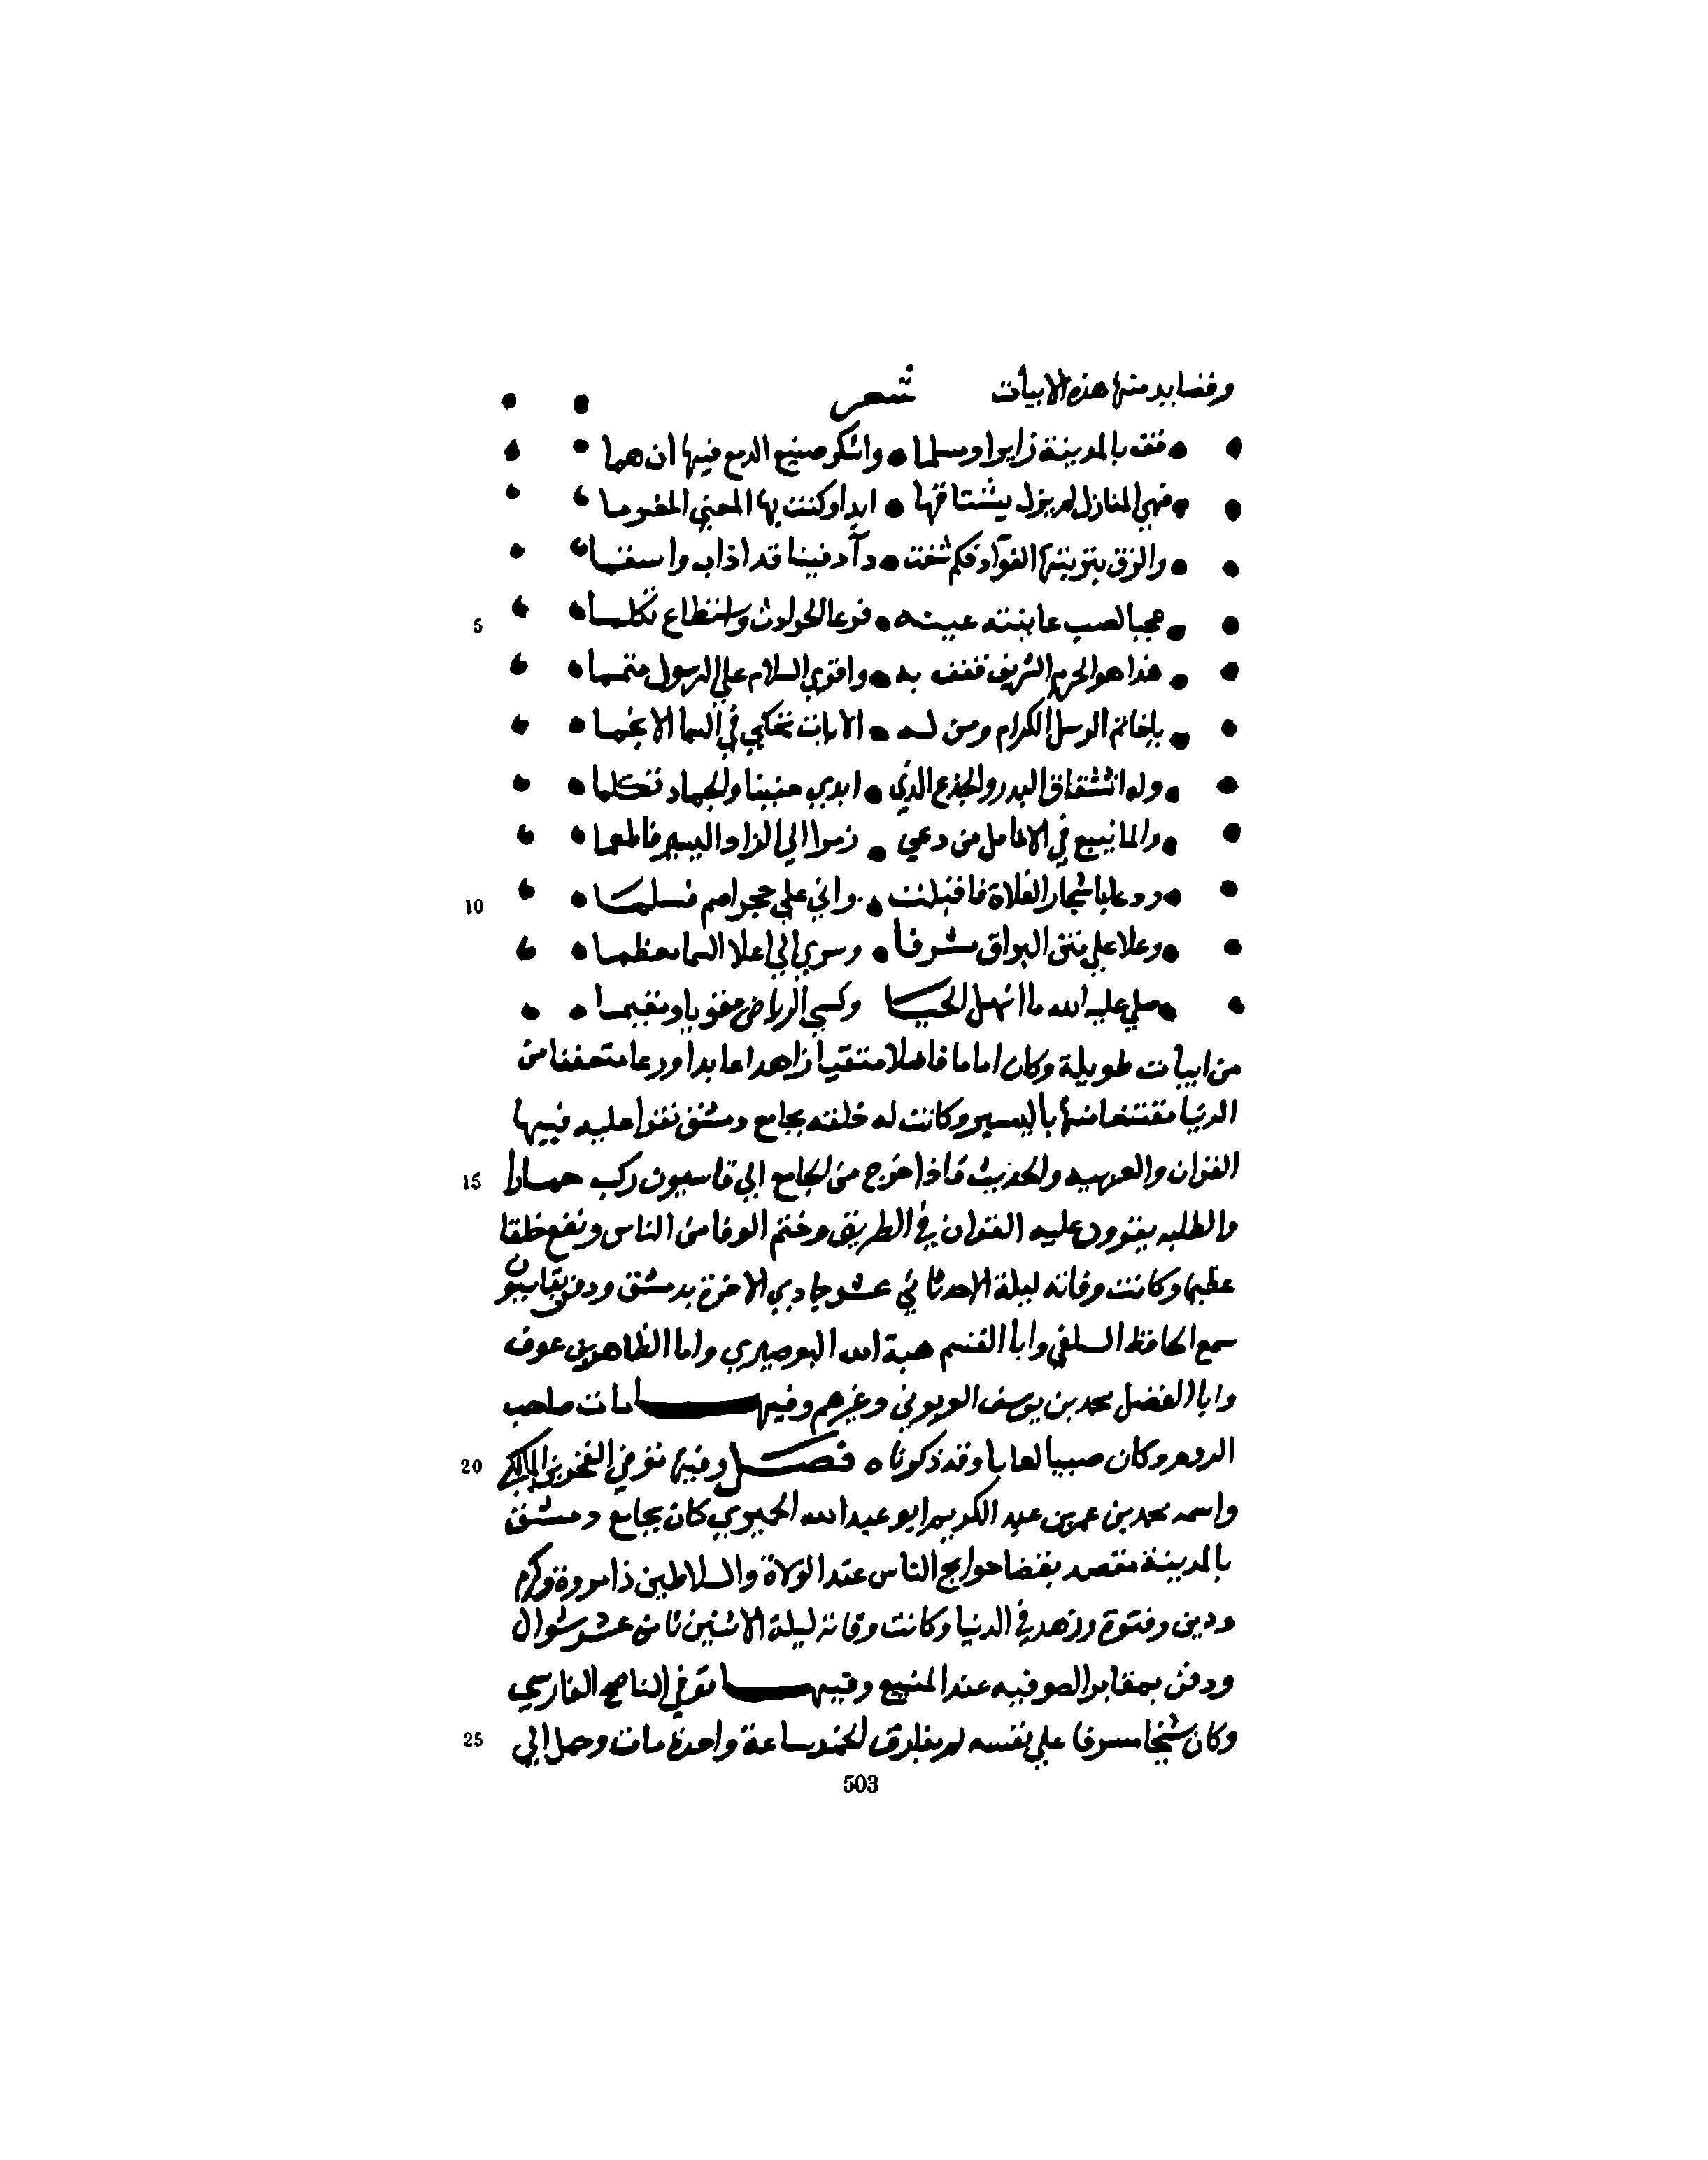 وقصايد منها هذه الابيات شعر
قف بالمدينة زايرا ومسلما واشكر صنيع الدمع فيها ان هما
فهي المنازل لم يزل يشتاقها ابدا وكنت بها المعني المغرما
والزق بتربتها الفوآد فكم شفت دآ دفينا قد اذاب واسقما
عجبا لصب عاينته عينه فرعا الحوادث واستطاع تكلما
هذا هو الحرم الشريف فقف به واقري السلام علي الرسول متمما
ياخاتم الرسل الكرام ومن له الايات تحكي في السما الانجما
وله انشقاق البدر والجذع الذي ابدي حنينا والجماد تكلما
والما ينبع في الانامل من دعي زمرا الي الزاد اليسير فاطعما
ودعا باشجار الفلاة فاقبلت واتي علي حجر اصم فسلما
وعلا علي متن البراق مشرفا وسري الي اعلا السما معظما
صلي عليه الله ما انهل الحيا وكسي الرياض مفوفا ومنمنما
من ابيات طويلة وكان اماما فاضلا متقيا زاهدا عابدا ورعا متعففا من
الدنيا مقتنعا منها باليسير وكانت له حلقه بجامع دمشق نقرا عليه فيها
القران والعربيه والحديث فاذا خرج من الجامع الي قاسيون ركب حمارا
والطلبه يقرون عليه القران في الطريق وختم الوفا من الناس ونفع خلقا
عظيما وكانت وفاته ليلة الاحد ثاني عشر جمادي الاخرة بدمشق ودفن بقاسيون
سمع الحافظ السلفي وابا القسم هبة الله البوصيري واما الظاهر بن عوف
وابا الفضل محمد بن يوسف الغزنوي وغيرهم وفيها مات صاحب
الروم وكان صبيا لعابا وقد ذكرناه فصل وفيها توفي الفخر بن المالكي
واسمه محمد بن عمر بن عبد الكريم ابو عبد الله الحميري كان بجامع دمشق
بالمدينة مقصد بقضا حوايج الناس عند الولاة والسلاطين ذا مروة وكرم
ودين وفتوة وزهد في الدنيا وكانت وفاته ليلة الاثنين ثامن عشر شوال
ودفن بمقابر الصوفيه عند المنيبع وفيها توفي الناصح الفارسي
وكان شيخا مسرفا علي نفسه لم يفارق الخمر ساعة واحدة مات وحمل الي
5
10
15
20
25
503